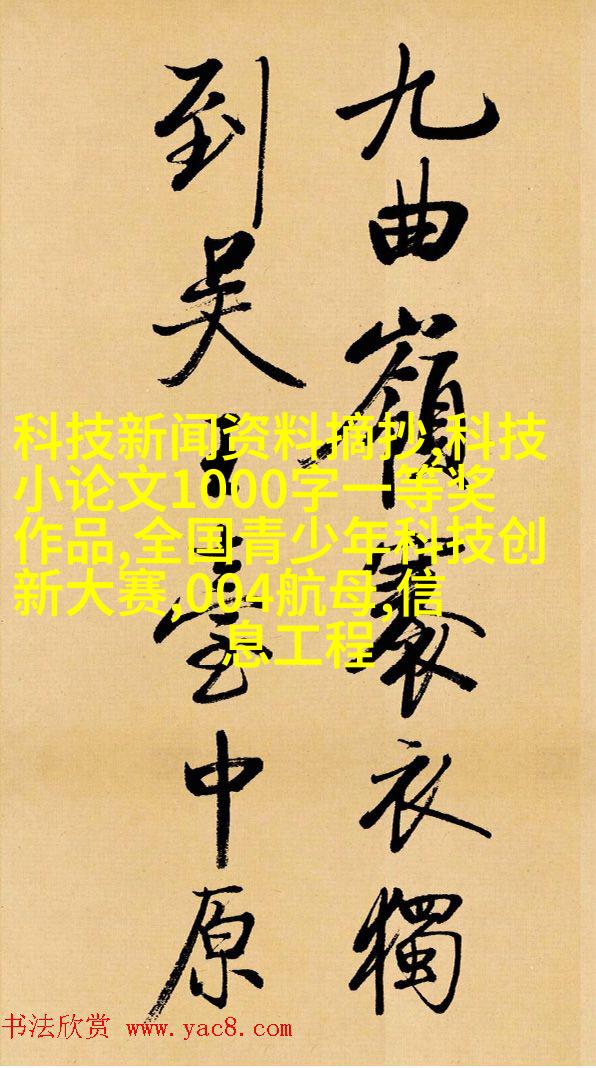 九曲嶺衣獨
到吳王臺中原
科技新闻资料摘抄,科技
小论文1000字一等奖
作品,全国青少年科技创
新大赛,004航母,信
息工程
书法欣赏 www.yac8.com